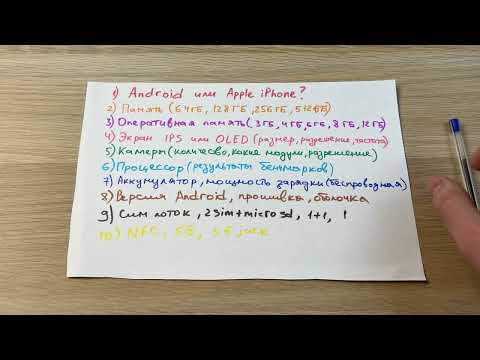 1) Android или Apple iPhone?
2) Память (64ГБ, 128ГБ, 256ГБ, 512ГБ)
3) Оперативная память (3ГБ, 4ГБ, 6ГБ, 8ГБ, 12ГБ)
4) Экран IPS или OLED (размер, разрешение, частота)
5) Камеры (количесво, какие модули, разрешение)
6) Процессор (результаты бенчмарков)
7) Аккумулятор, мощность зарядки (беспроводная)
8) Версия Android, прошивка, оболочка
9) Сим лоток, 2sim+microsd, 1+1, 1
10) NFC, 5G, 3.5 jack